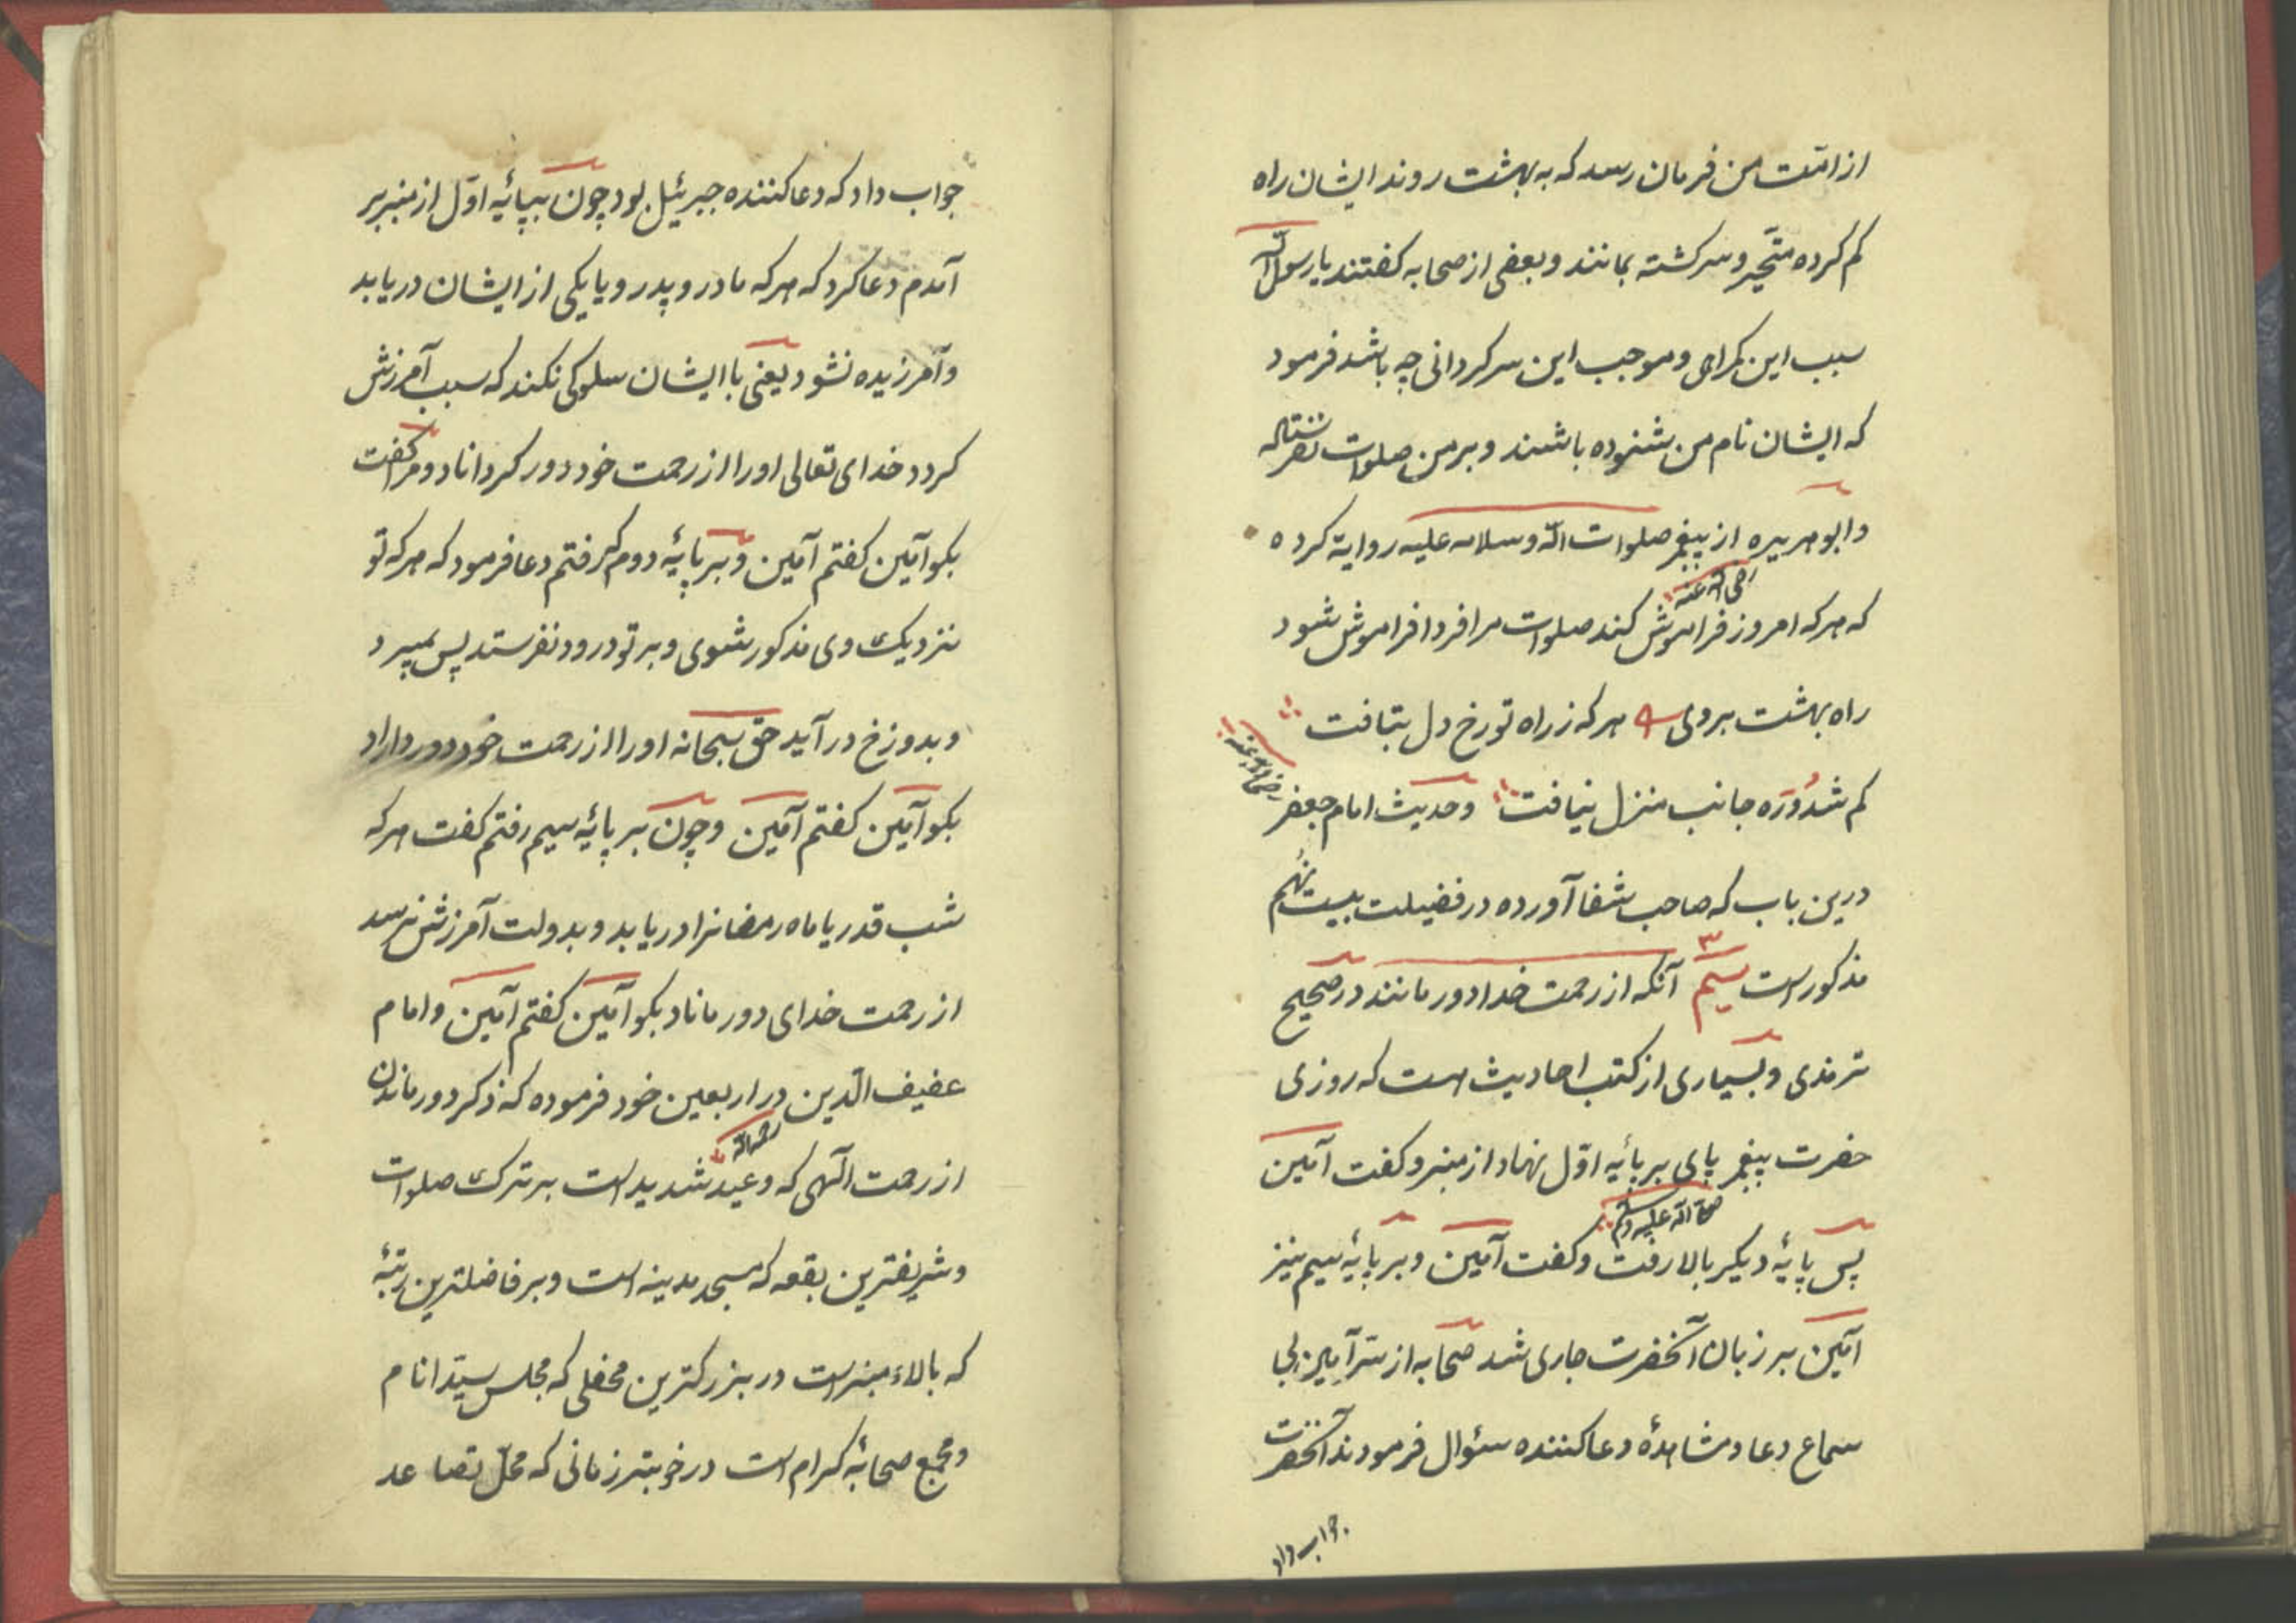 از امت من فرمان رسد که به بهشت روند ایشان راه
کم کرده متحیر و سرکشته بمانند و بعضی از صحابه کفتند یا رسول الله
سبب این کمراهی و موجب این سرکردانی چه باشد فرمود
که ایشان نام من شنوده باشند و بر من صلوات نفرستاده
و ابو هریره از پیغمبر صلوات الله و سلامه علیه روایة کرده
رضی الله عنه
که هر که امروز فراموش کند صلوات مرا فردا فراموش شود
راه بهشت بر وی هر که ز راه تو رخ دل بتافت
کم شد و ره جانب منزل نیافت و حدیث امام جعفر
رضی الله عنه
درین باب که صاحب شفا آورده در فضیلت بیست نهم
مذکور است سیم ۳ آنکه از رحمت خدا دور مانند در صحیح
ترمذی و بسیاری از کتب احادیث است که روزی
حضرت پیغمبر پای بر پایٔه اوّل نهاد از منبر و کفت آمین
صلی الله علیه وسلم
پس پایٔه دیکر بالا رفت و کفت آمین و بر پایٔه سیم نیز
آمین بر زبان آنحضرت جاری شد صحابه از سرّ آمین بی
سماع دعا و مشاهدهٔ دعا کننده سئوال فرمودند آنحضرت
جواب داد
جواب داد که دعا کننده جبرئیل بود چون بپایٔه اوّل از منبر بر
آمدم دعا کرد که هر که مادر و پدر و یا یکی از ایشان دریابد
و آمرزیده نشود یعنی با ایشان سلوکی نکند که سبب آمرزش
کردد خدای تعالی او را از رحمت خود دور کرداناد و مرا کفت
بکو آمین کفتم آمین و بر پایٔه دوم که رفتم دعا فرمود که هر که تو
نزدیک وی مذکور شوی و بر تو درود نفرستد پس بمیرد
و بدوزخ در آید حق سبحانه او را از رحمت خود دور داراد
بکو آمین کفتم آمین و چون بر پایٔه سیم رفتم کفت هر که
شب قدر یا ماه رمضانرا دریابد و بدولت آمرزش نرسد
از رحمت خدای دور ماناد بکو آمین کفتم آمین و امام
عفیف الدین در اربعین خود فرموده که ذکر دور ماندن
رحمه الله
از رحمت الهی که وعید شدید است بر ترک صلوات
و شریفترین بقعه که مسجد مدینه است و بر فاضلترین رتبهٔ
که بالاء منبر است در بزرکترین محفلی که مجلس سیّد انام
و مجمع صحابهٔ کرام است در خوبتر زمانی که محلّ تصاعد